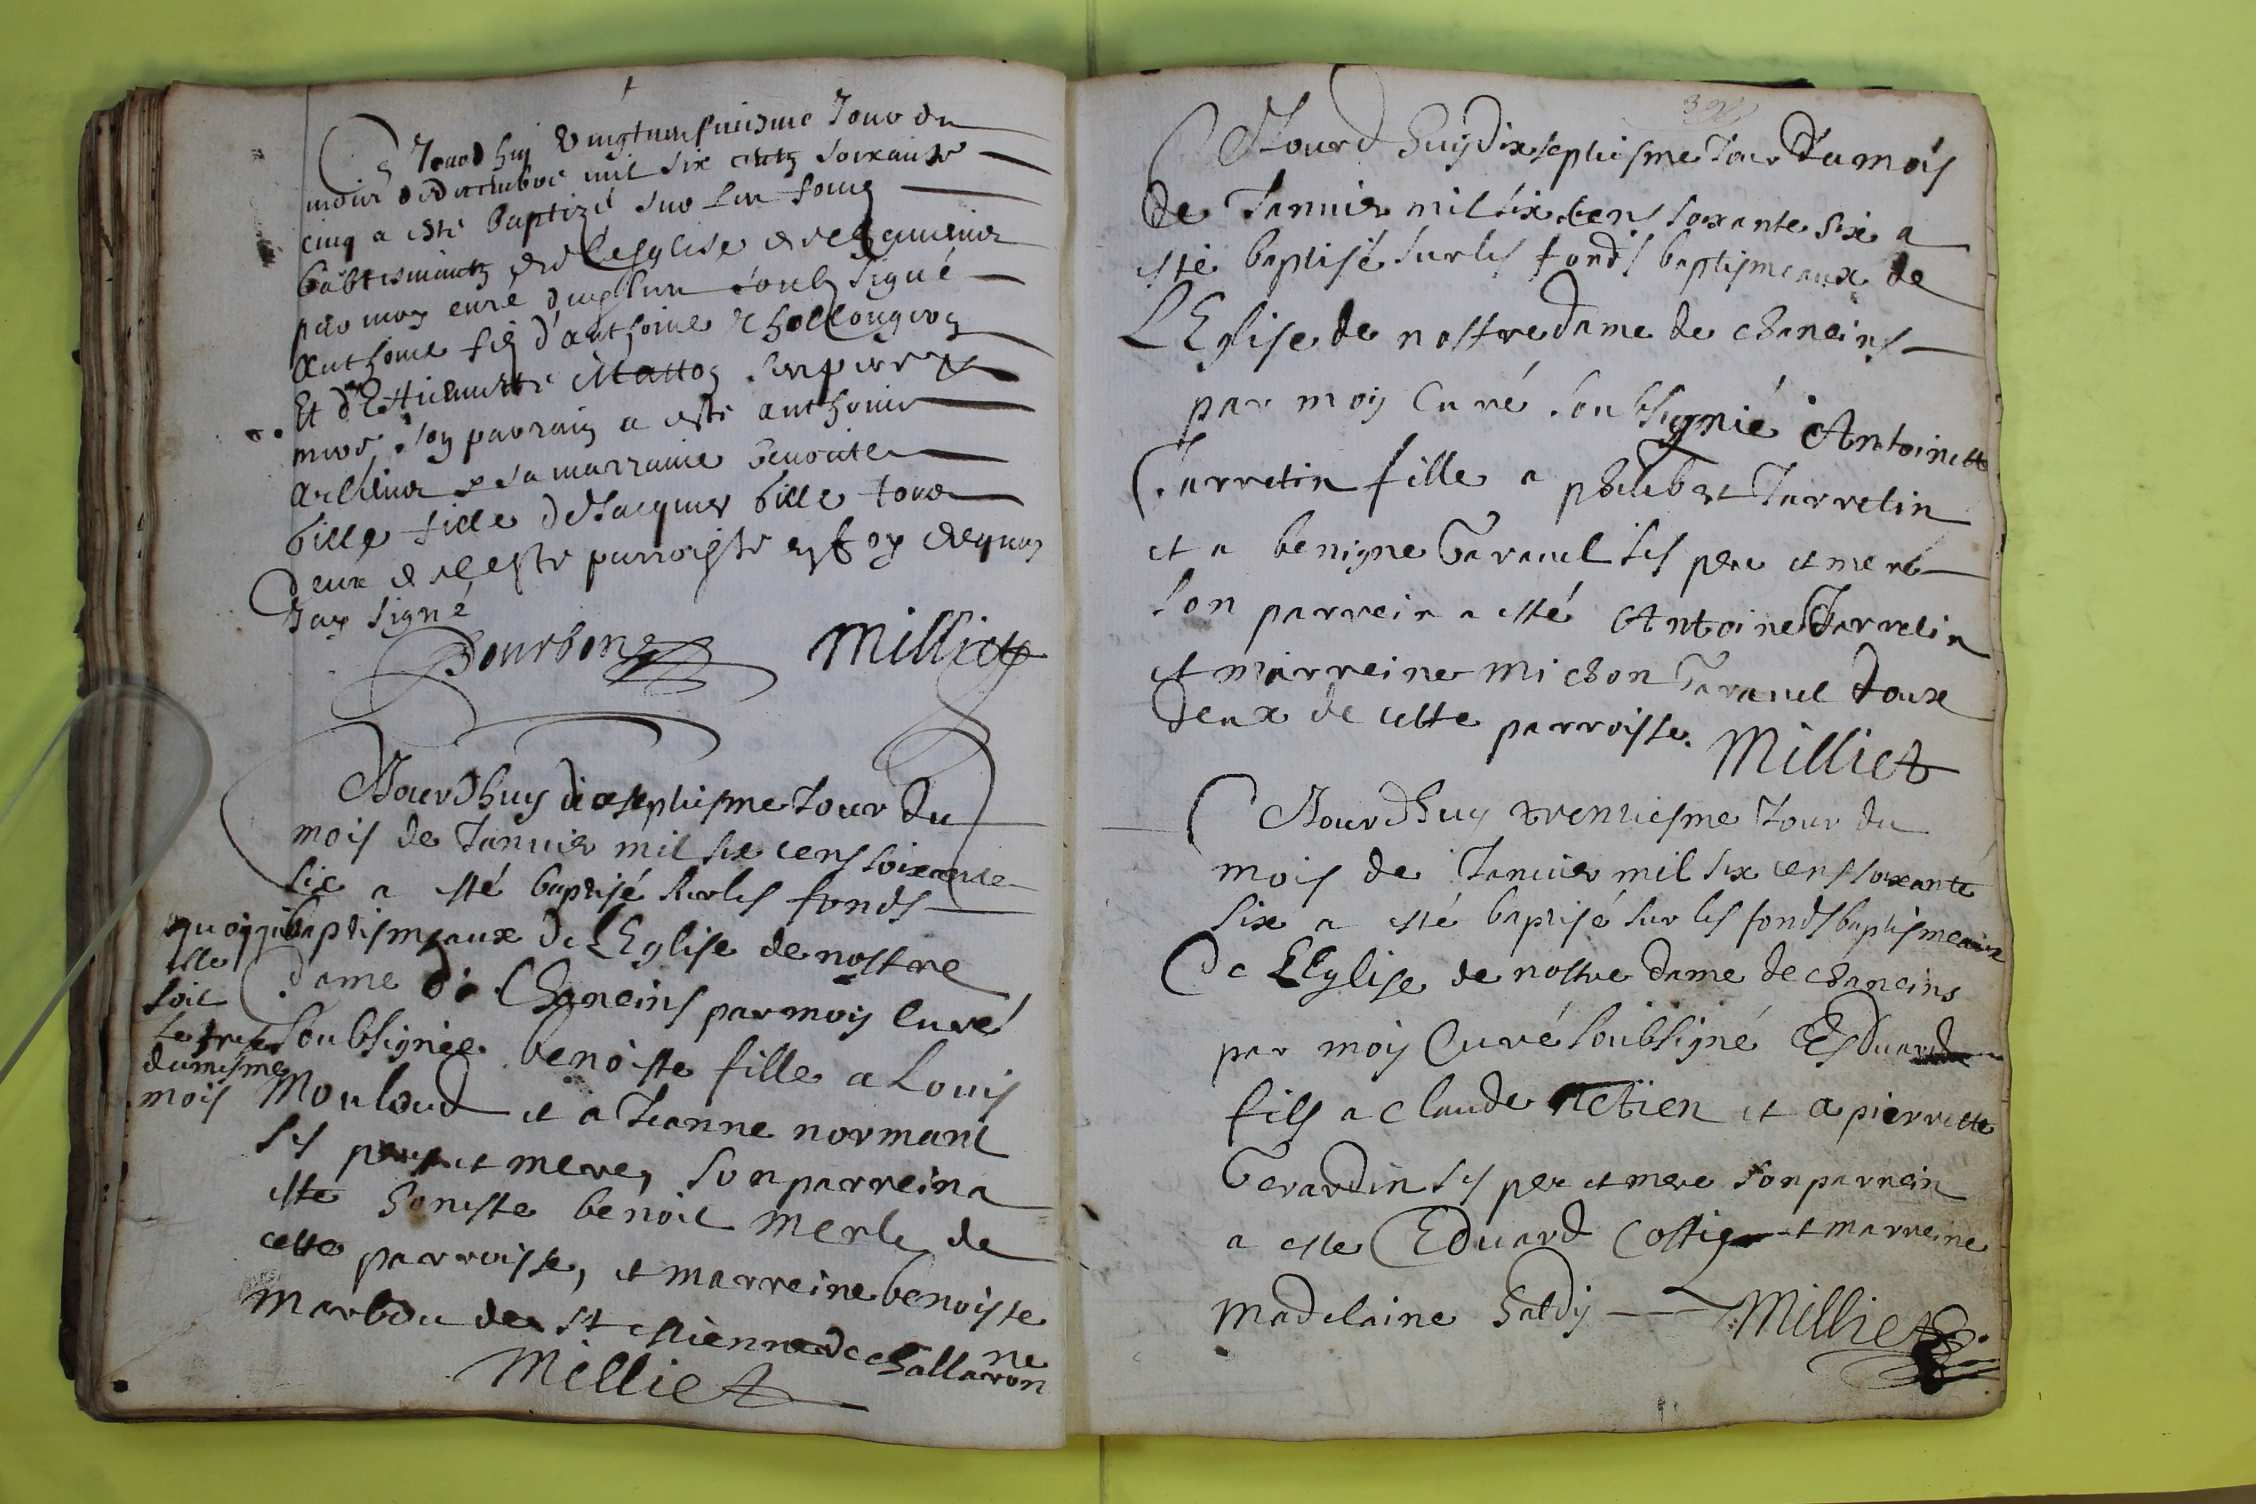 Ce Jourdhuy vingtneufviesme Jour du
mois de decembre mil six centz soixante
cinq a esté baptizé sur les fons
baptismaux de l'esglise de
par moy curé soubsigné
Anthoine filz d'anthoine
Et d'Ettiennette Matton ses pere &
mere, son parrain a esté anthoine
& sa marraine benoite
bille fille de Jacques bille tous
deux de ceste parroisse en foy dequoy
J'ay signé
Bourbon Milliet
A Jourdhuy dixseptiesme Jour du
mois de Januier mil six cens soixante
six a esté baptisé sur les fonds
baptismeaux de L'Eglise de nostre
dame de Chaneins par moy Curé
soubsignée benoiste fille a Louis
Mouloud et a Jeanne normant
ses pere et mere, son parrein a
esté honeste benoit Merle de
cette parroisse, et marreine benoiste
Marbdu de St estienne de challaron
ne
Milliet
quoyqu
elle
soit
le
du mesme
mois
A Jourd huy dixseptiesme Jour du mois
de Januier mil six cens soixante six a
esté baptisé sur les fonds baptismeaux de
L'Eglise de nostre dame de chaneins
par moy Curé soubsignié Antoinette
Jarretin fille a philibert Jarretin
et a benigne Garauel ses pere et mere
son parrein a esté Antoine Jarretin
et marreine Michon Garauel tous
deux de cette parroisse. Milliet
A Jourdhuy trentiesme Jour du
mois de Januier mil six cens soixante
six a esté baptisé sur les fonds baptismeaux
de L'Eglise de nostre dame de chaneins
par moy Curé soubsigné Esduard
fils a claude et a pierrette
Gerardin ses pere et mere son parrein
a este Eduard et marreine
Madelaine Milliet